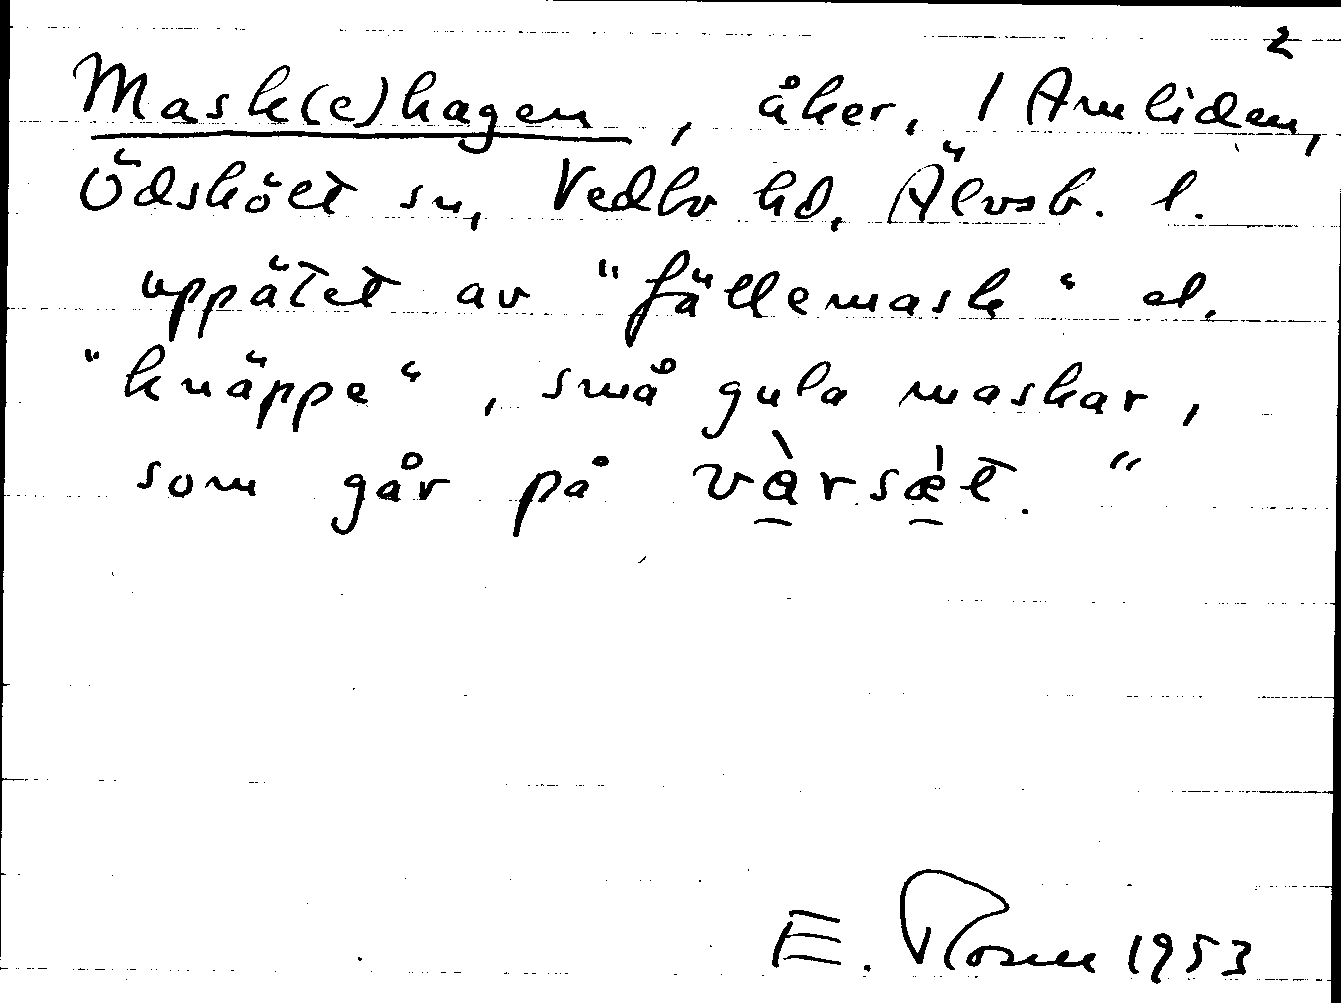 2
Mask(e)hagen, åker, 1 Amliden,
Ödskölt sn, Vedbo hd, Älvsb. l.
uppätet av "fällemask" el.
"knäppe", små gula maskar,
som går på vàrsæ̀t."
E. Rosell 1953